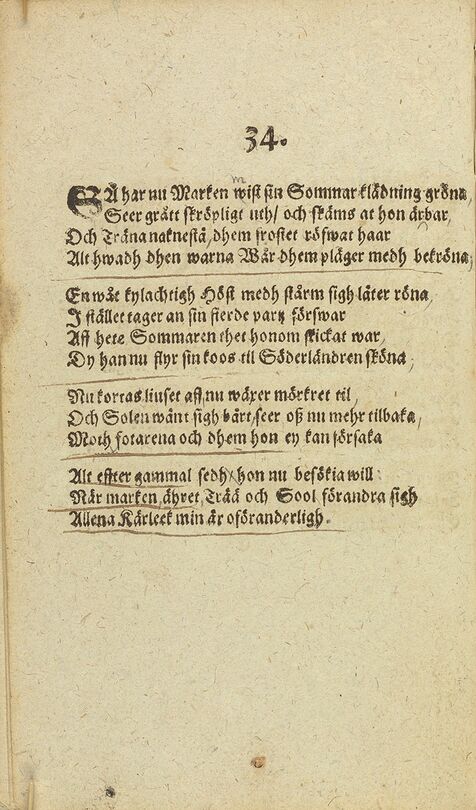 34.
SÅ har nu Marken mist sin Sommar klädning gröna,
Seer grått skröpligt uth/ och skäms at hon är bar,
Och Träna naknestå, dhem frostet röfwat haar
Alt hwadh dhen warna Wår dhem pläger medh bekröna;
En wåt kylachtigh Höst medh stårm sigh låter röna,
I stället tager an sin fierde part förswar
Aff hete Sommaren thet honom skickat war,
Ty han nu flyr sin koos til Söderländren sköna;
Nu kortas liuset aff, nu wäxer mörkret til,
Och Solen wänt sigh bårt, seer oß nu mehr tilbaka,
Moth fotarena och dhem hon ey kan försaka
Alt effter gammal sedh, hon nu besökia will:
När marken, åhret, Trää och Sool förandra sigh
Allena Kärleek min är oföranderligh.